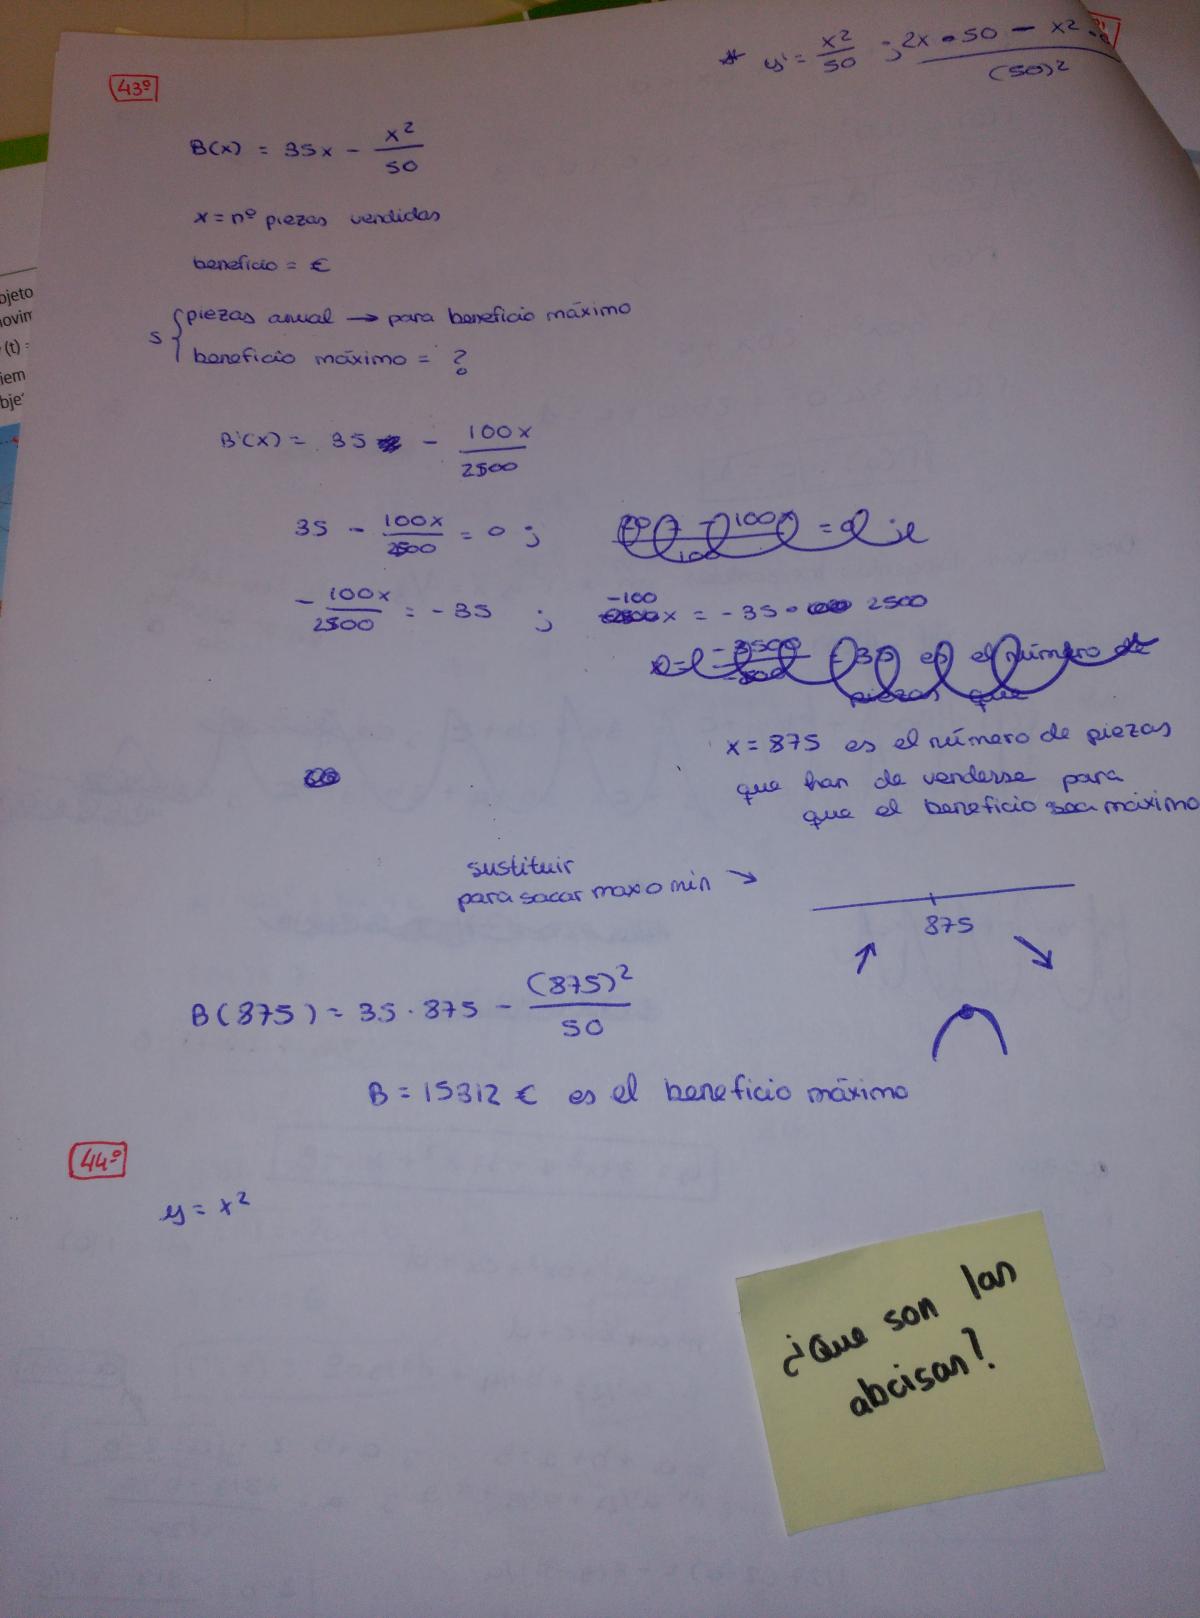 * y' = x² / 50 ; 2x · 50 - x² ·
(50)²
43º
B(x) = 35x - x² / 50
x = nº piezas vendidas
beneficio = €
s { piezas anual → para beneficio máximo
beneficio máximo = ?
B'(x) = 35 - 100x / 2500
35 - 100x / 2500 = 0 ;
- 100x / 2500 = -35 ; -100 x = -35 · 2500
es el número de
piezas que
x = 875 es el número de piezas
que han de venderse para
que el beneficio sea máximo
sustituir
para sacar max o min →
875
B(875) = 35 · 875 - (875)² / 50
B = 15312 € es el beneficio máximo
44º
y = x²
¿Que son las
abcisas?
objeto
(t) =